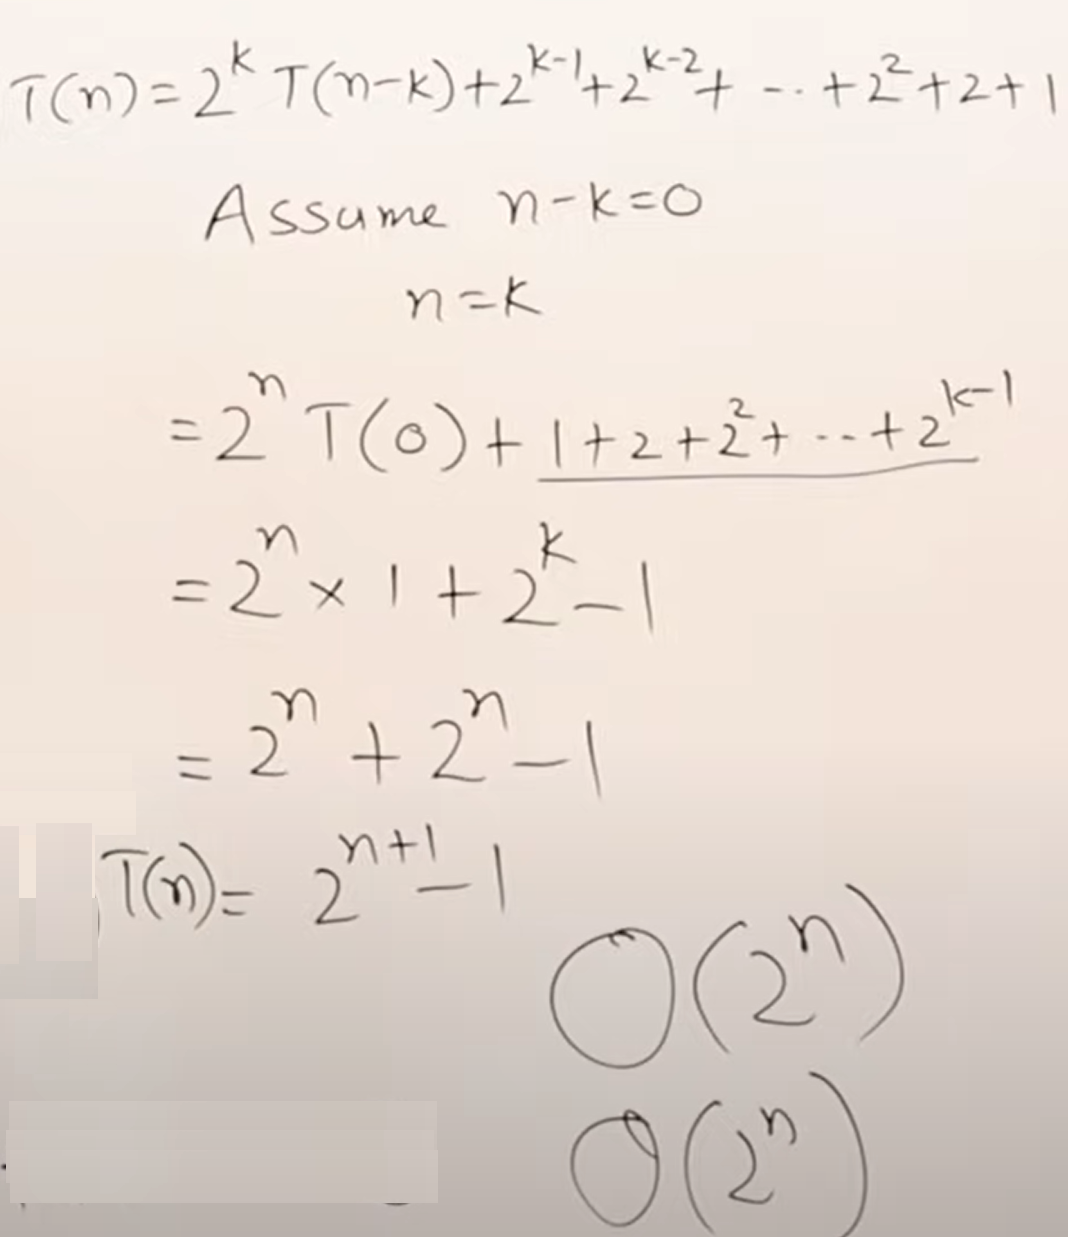 T(n) = 2^k T(n-k) + 2^{k-1} + 2^{k-2} + -.. + 2^2 + 2 + 1
Assume n-k=0
n=k
= 2^n T(0) + 1 + 2 + 2^2 + -.. + 2^{k-1}
= 2^n × 1 + 2^k - 1
= 2^n + 2^n - 1
T(n) = 2^{n+1} - 1
O(2^n)
O(2^n)